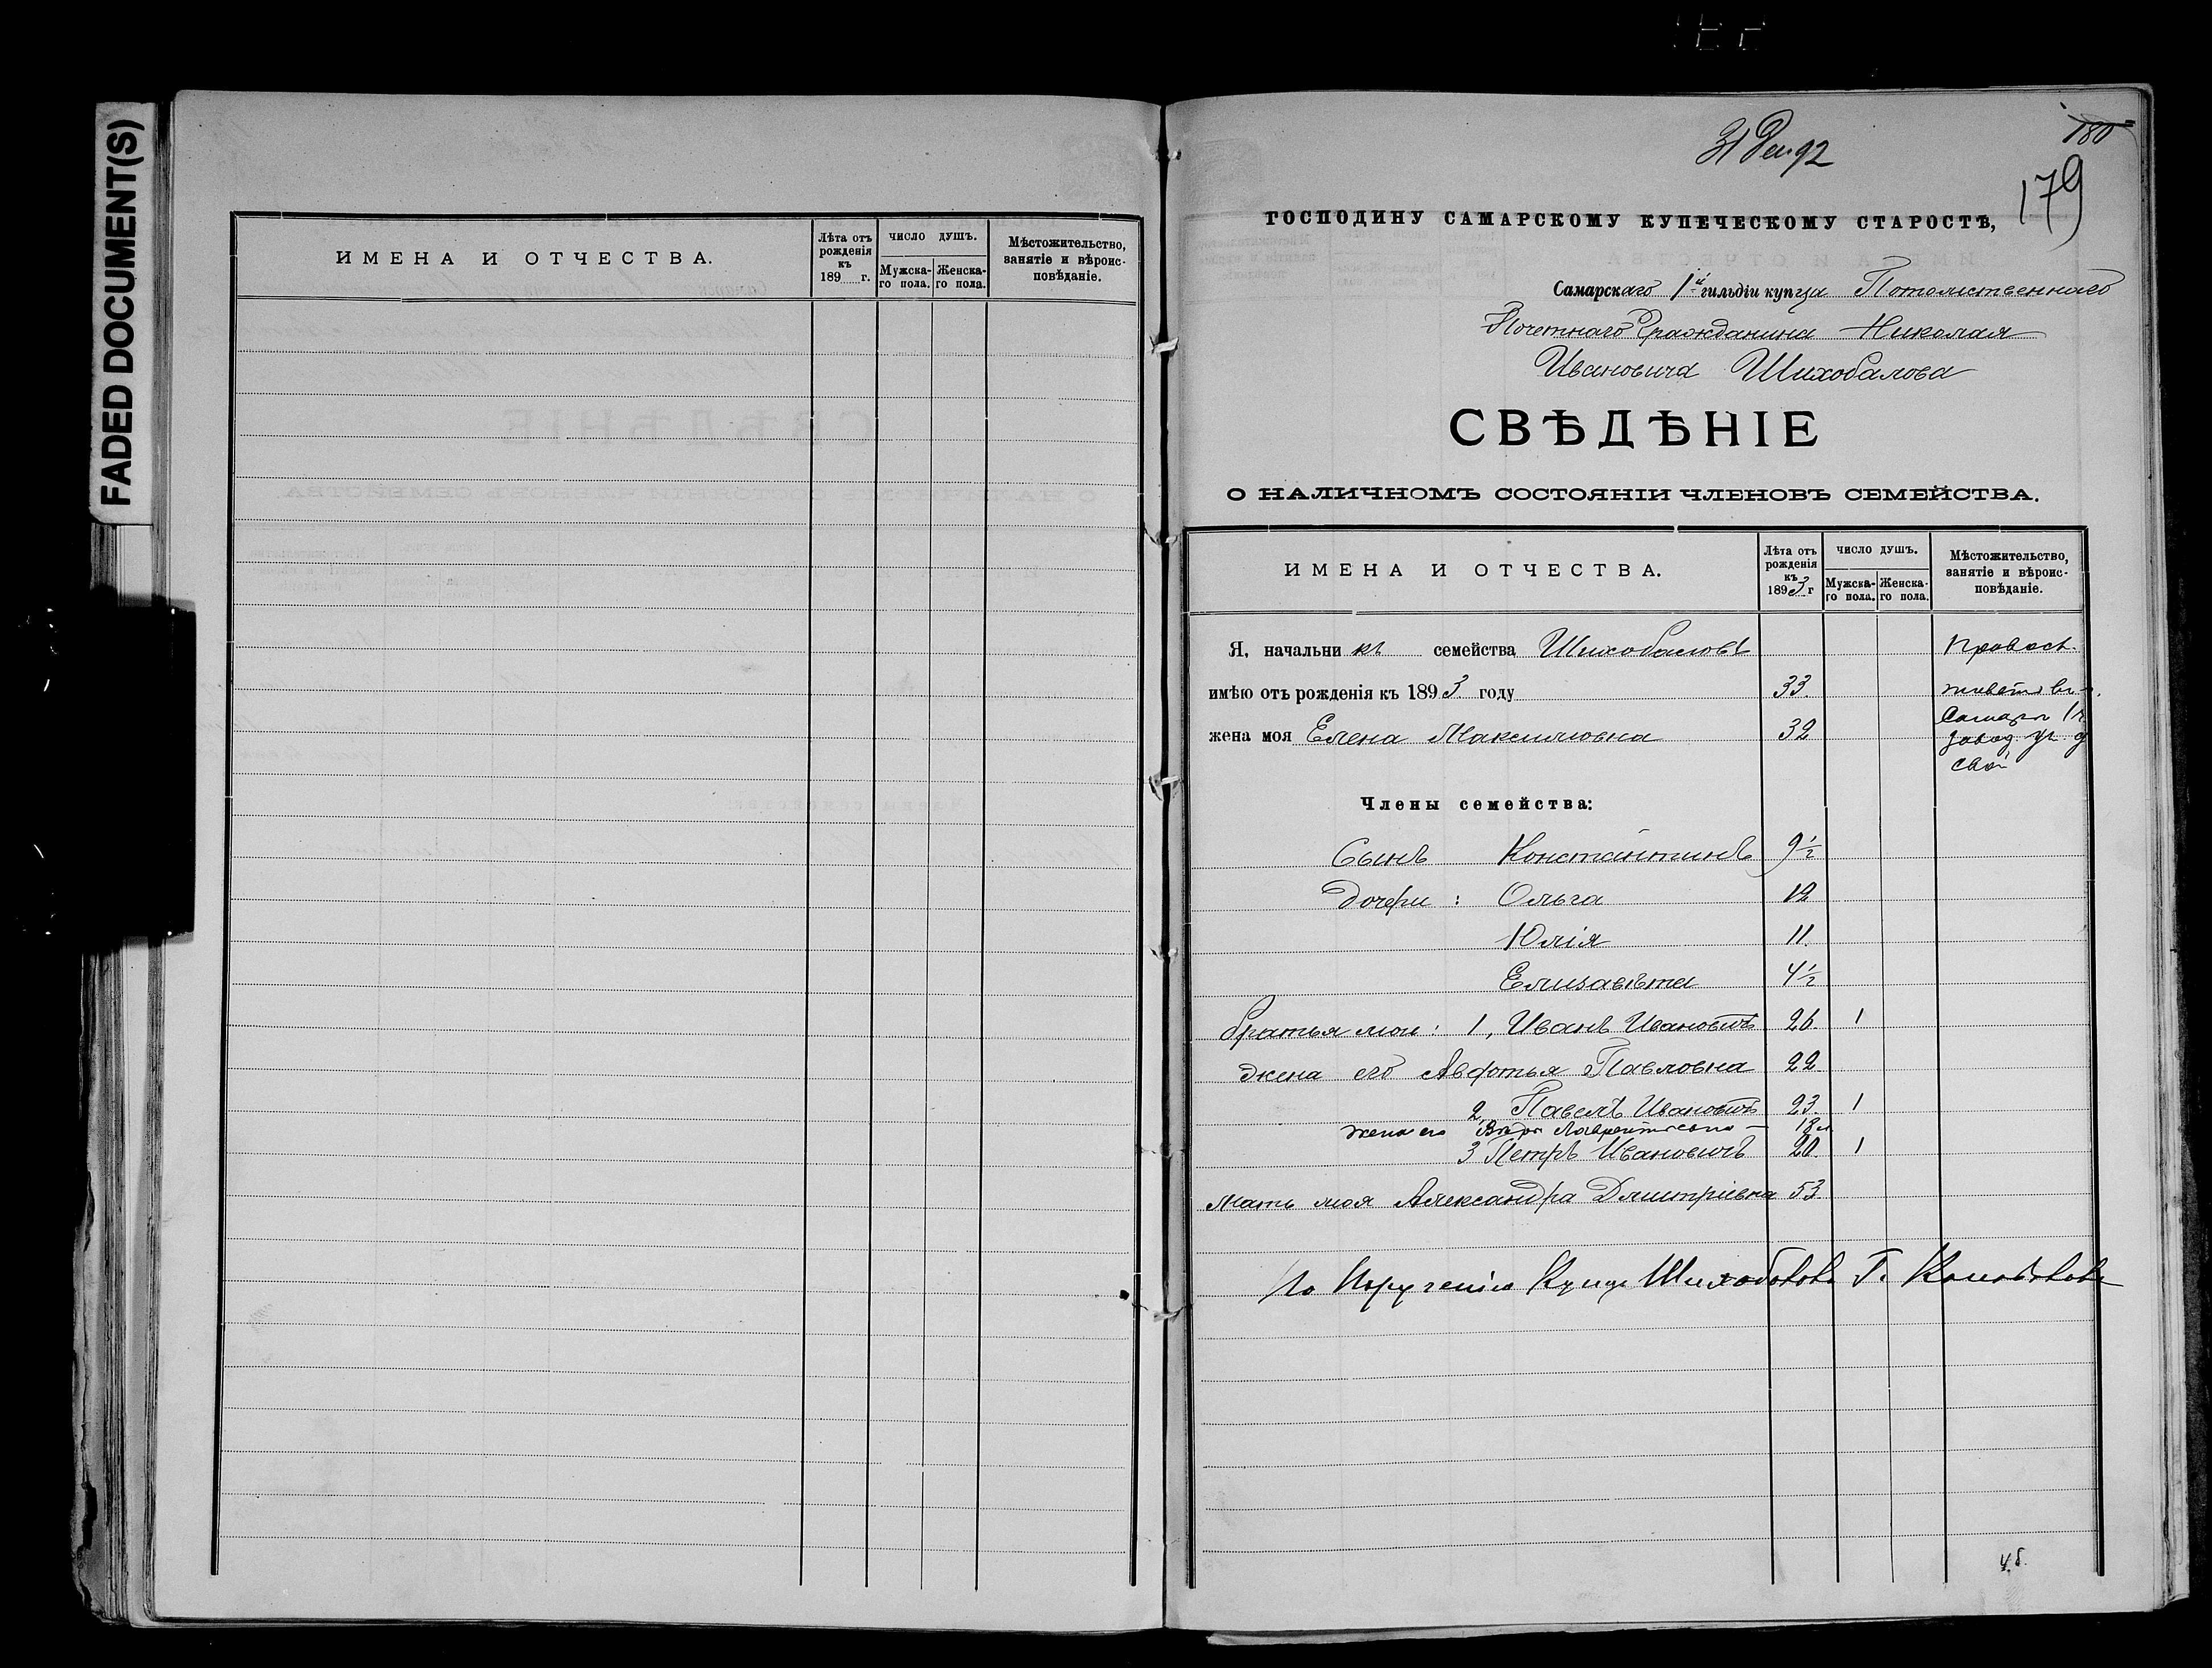 FADED DOCUMENT(S)
ИМЕНА И ОТЧЕСТВА.
Лѣта отъ рожденія къ 189 г.
ЧИСЛО ДУШЪ.
Мужска-го пола.
Женска-го пола.
Мѣстожительство, занятіе и вѣроис-повѣданіе.
31 Дек 92
180
179
ГОСПОДИНУ САМАРСКОМУ КУПЕЧЕСКОМУ СТАРОСТѢ,
Самарскаго 1й гильдіи купца Потомственнаго
Почетнаго Гражданина Николая
Ивановича Шихобалова
СВѢДѢНІЕ
О НАЛИЧНОМЪ СОСТОЯНІИ ЧЛЕНОВЪ СЕМЕЙСТВА.
ИМЕНА И ОТЧЕСТВА.
Лѣта отъ рожденія къ 1893 г
ЧИСЛО ДУШЪ.
Мужска-го пола.
Женска-го пола.
Мѣстожительство, занятіе и вѣроис-повѣданіе.
Я, начальникъ семейства Шихобаловъ Правосл.
имѣю отъ рожденія къ 1893 году 33. живетъ въ
жена моя Елена Максимовна 32 Самарѣ
завод. ул. д
свой
Члены семейства:
Сынъ Константинъ 9 1/2
дочери: Ольга 12
Юлія 11.
Елизавѣта 4 1/2
братья мои: 1, Иванъ Ивановичъ 26. 1
жена его Авдотья Павловна 22
2, Павелъ Ивановичъ 23. 1
жена его Вѣра Лаврентьевна – 18 л
3 Петръ Ивановичъ 20. 1
Мать моя Александра Дмитріевна 53.
По порученію Купца Шихобалова Г. Коновалов